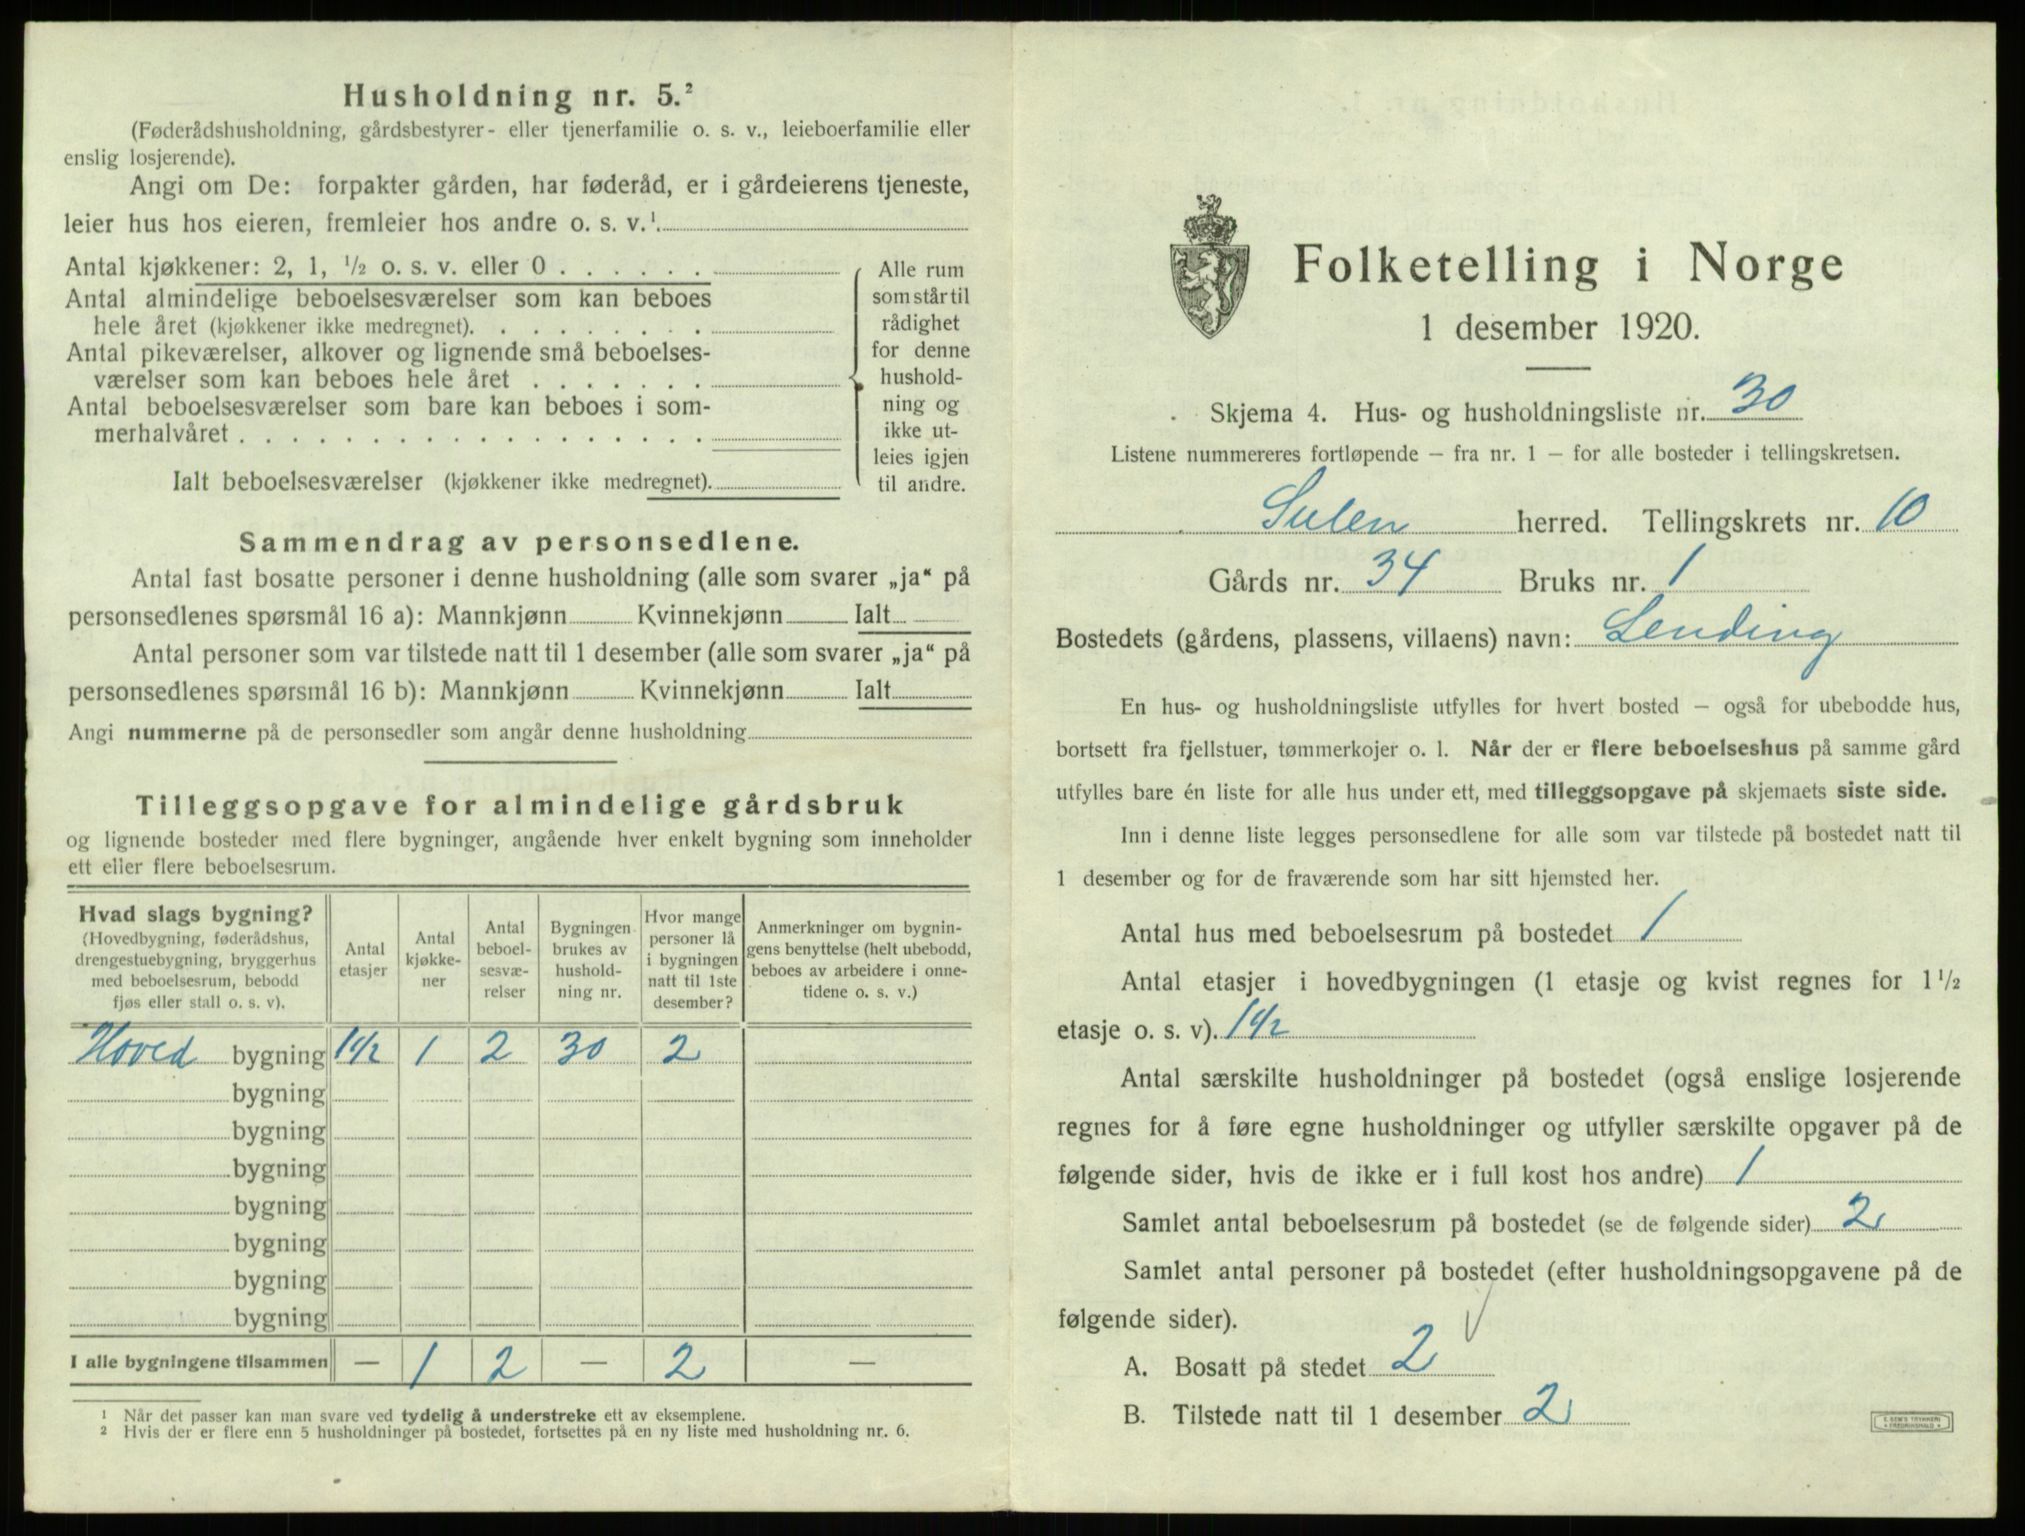 Husholdning nr. 5.²
(Føderådshusholdning, gårdsbestyrer- eller tjenerfamilie o. s. v., leieboerfamilie eller
enslig losjerende).
Angi om De: forpakter gården, har føderåd, er i gårdeierens tjeneste,
leier hus hos eieren, fremleier hos andre o. s. v.¹
Antal kjøkkener: 2, 1, ½ o. s. v. eller 0 . . . . . .
Antal almindelige beboelsesværelser som kan beboes
hele året (kjøkkener ikke medregnet). . . . . . . . . .
Antal pikeværelser, alkover og lignende små beboelses-
værelser som kan beboes hele året . . . . . . .
Antal beboelsesværelser som bare kan beboes i som-
merhalvåret . . . . . . . . . . . . . . . . . .
Ialt beboelsesværelser (kjøkkener ikke medregnet).
Alle rum
som står til
rådighet
for denne
hushold-
ning og
ikke ut-
leies igjen
til andre.
Sammendrag av personsedlene.
Antal fast bosatte personer i denne husholdning (alle som svarer „ja“ på
personsedlenes spørsmål 16 a): Mannkjønn Kvinnekjønn Ialt
Antal personer som var tilstede natt til 1 desember (alle som svarer „ja“ på
personsedlenes spørsmål 16 b): Mannkjønn Kvinnekjønn Ialt
Angi nummerne på de personsedler som angår denne husholdning
Tilleggsopgave for almindelige gårdsbruk
og lignende bosteder med flere bygninger, angående hver enkelt bygning som inneholder
ett eller flere beboelsesrum.
Hvad slags bygning?
(Hovedbygning, føderådshus,
drengestuebygning, bryggerhus
med beboelsesrum, bebodd
fjøs eller stall o. s. v).
Antal
etasjer
Antal
kjøkke-
ner
Antal
beboel-
sesvæ-
relser
Bygningen
brukes av
hushold-
ning nr.
Hvor mange
personer lå
i bygningen
natt til 1ste
desember?
Anmerkninger om bygnin-
gens benyttelse (helt ubebodd,
beboes av arbeidere i onne-
tidene o. s. v.)
Hoved bygning 1½ 1 2 30 2
bygning
bygning
bygning
bygning
bygning
bygning
bygning
I alle bygningene tilsammen — 1 2 — 2 —
¹ Når det passer kan man svare ved tydelig å understreke ett av eksemplene.
² Hvis der er flere enn 5 husholdninger på bostedet, fortsettes på en ny liste med husholdning nr. 6.
Folketelling i Norge
1 desember 1920.
Skjema 4. Hus- og husholdningsliste nr. 30
Listene nummereres fortløpende — fra nr. 1 — for alle bosteder i tellingskretsen.
Sulen herred. Tellingskrets nr. 10
Gårds nr. 34 Bruks nr. 1
Bostedets (gårdens, plassens, villaens) navn: Lending
En hus- og husholdningsliste utfylles for hvert bosted — også for ubebodde hus,
bortsett fra fjellstuer, tømmerkojer o. l. Når der er flere beboelseshus på samme gård
utfylles bare én liste for alle hus under ett, med tilleggsopgave på skjemaets siste side.
Inn i denne liste legges personsedlene for alle som var tilstede på bostedet natt til
1 desember og for de fraværende som har sitt hjemsted her.
Antal hus med beboelsesrum på bostedet 1
Antal etasjer i hovedbygningen (1 etasje og kvist regnes for 1 ½
etasje o. s. v). 1½
Antal særskilte husholdninger på bostedet (også enslige losjerende
regnes for å føre egne husholdninger og utfyller særskilte opgaver på de
følgende sider, hvis de ikke er i full kost hos andre) 1
Samlet antal beboelsesrum på bostedet (se de følgende sider) 2
Samlet antal personer på bostedet (efter husholdningsopgavene på de
følgende sider).
A. Bosatt på stedet 2
B. Tilstede natt til 1 desember 2
E. SEM'S TRYKKERI
FREDRIKSHALD